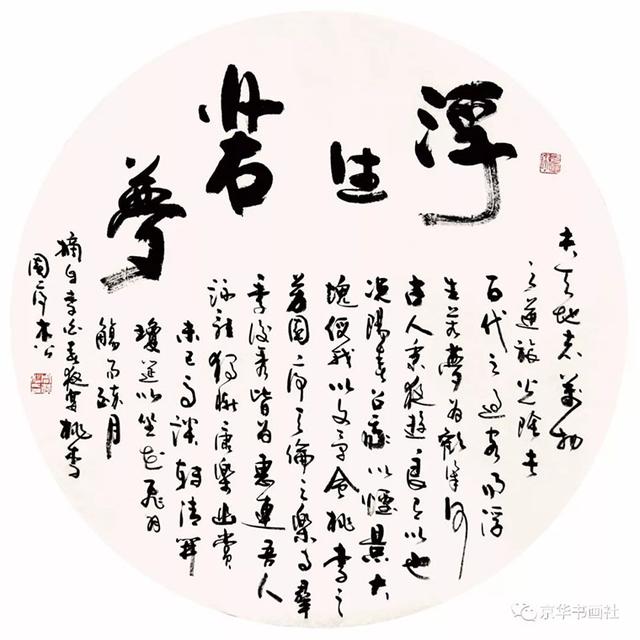 浮生若夢
夫天地者萬物
之逆旅光陰者
百代之過客而浮
生若夢為歡幾何
古人秉夜遊良有以也
況陽春召我以煙景大
塊假我以文章會桃李之
芳園序天倫之樂事群
季俊秀皆為惠連吾人
詠歌獨慚康樂幽賞
未已高談轉清開
瓊筵以坐花飛羽
觴而醉月
摘自李白春夜宴桃李
園序木公
京华书画社